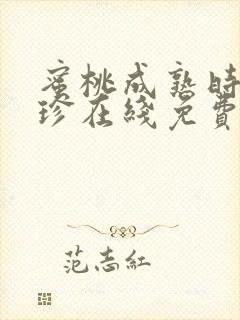 蜜桃成熟時
珍在綫免費
范志紅